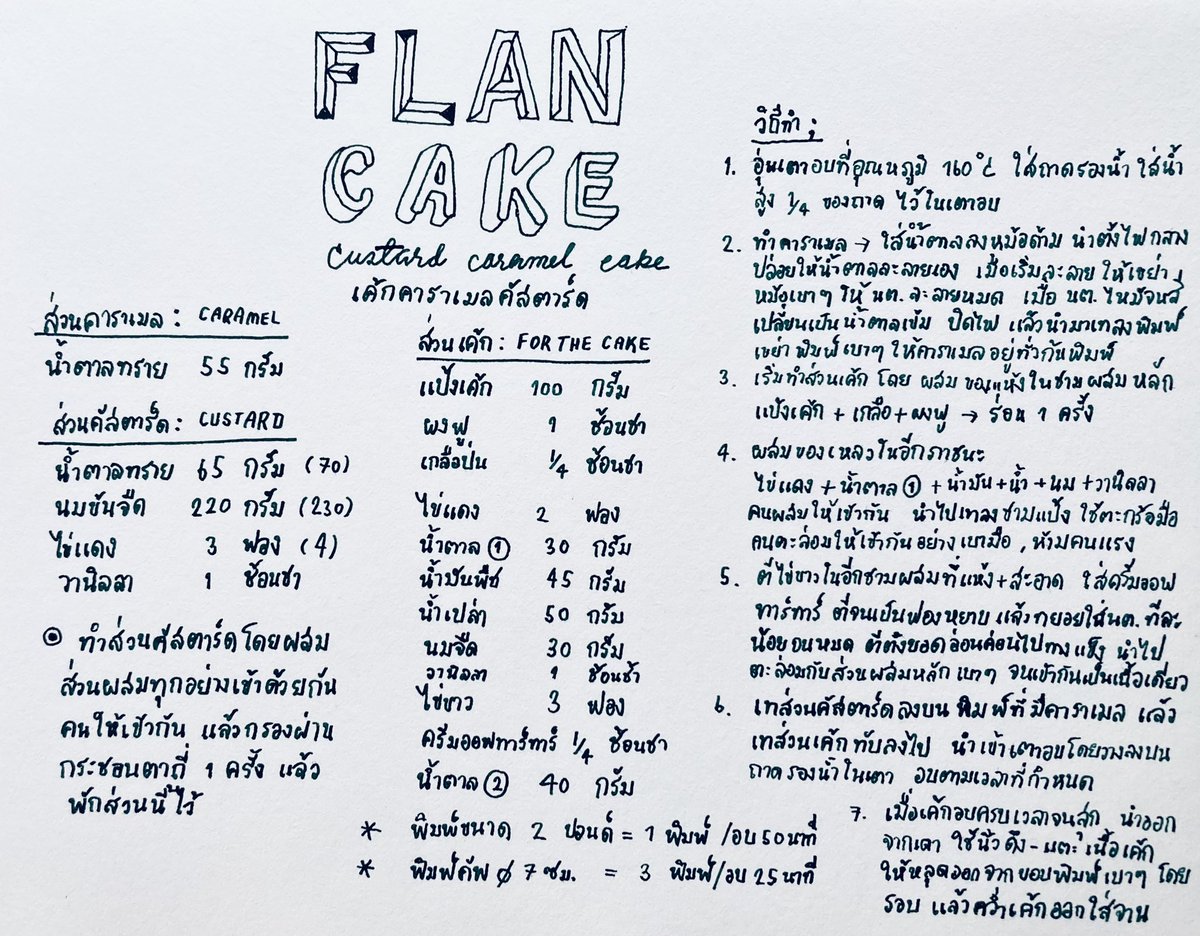 FLAN
CAKE
Custard caramel cake
เค้กคาราเมลคัสตาร์ด
ส่วนคาราเมล : CARAMEL
น้ำตาลทราย 55 กรัม
ส่วนคัสตาร์ด : CUSTARD
น้ำตาลทราย 65 กรัม (70)
นมข้นจืด 220 กรัม (230)
ไข่แดง 3 ฟอง (4)
วานิลลา 1 ช้อนชา
◉ ทำส่วนคัสตาร์ดโดยผสม
ส่วนผสมทุกอย่างเข้าด้วยกัน
คนให้เข้ากัน แล้วกรองผ่าน
กระชอนตาถี่ 1 ครั้ง แล้ว
พักส่วนนี้ไว้
ส่วนเค้ก : FOR THE CAKE
แป้งเค้ก 100 กรัม
ผงฟู 1 ช้อนชา
เกลือป่น 1/4 ช้อนชา
ไข่แดง 2 ฟอง
น้ำตาล ① 30 กรัม
น้ำมันพืช 45 กรัม
น้ำเปล่า 50 กรัม
นมจืด 30 กรัม
วานิลลา 1 ช้อนช้า
ไข่ขาว 3 ฟอง
ครีมออฟทาร์ทาร์ 1/4 ช้อนชา
น้ำตาล ② 40 กรัม
* พิมพ์ขนาด 2 ปอนด์ = 1 พิมพ์ /อบ 50 นาที
* พิมพ์คัพ ∅ 7 ซม. = 3 พิมพ์/อบ 25 นาที
วิธีทำ :
1. อุ่นเตาอบที่อุณหภูมิ 160°c ใส่ถาดรองน้ำ ใส่น้ำ
สูง 1/4 ของถาด ไว้ในเตาอบ
2. ทำคาราเมล → ใส่น้ำตาลลงหม้อด้าม นำตั้งไฟกลาง
ปล่อยให้น้ำตาลละลายเอง เมื่อเริ่มละลาย ให้เขย่า
หม้อเบาๆ ให้ นต. ละลายหมด เมื่อ นต. ไหม้จนสี
เปลี่ยนเป็นน้ำตาลเข้ม ปิดไฟ แล้วนำมาเทลงพิมพ์
เขย่าพิมพ์เบาๆ ให้คาราเมลอยู่ทั่วก้นพิมพ์
3. เริ่มทำส่วนเค้ก โดย ผสม ของแห้งในชามผสมหลัก
แป้งเค้ก + เกลือ + ผงฟู → ร่อน 1 ครั้ง
4. ผสมของเหลวในอีกภาชนะ
ไข่แดง + น้ำตาล ① + น้ำมัน + น้ำ + นม + วานิลลา
คนผสมให้เข้ากัน นำไปเทลงชามแป้ง ใช้ตะกร้อมือ
คนตะล่อมให้เข้ากันอย่างเบามือ , ห้ามคนแรง
5. ตีไข่ขาวในอีกชามผสมที่แห้ง+สะอาด ใส่ครีมออฟ
ทาร์ทาร์ ตีจนเป็นฟองหยาบ แล้วทยอยใส่นต. ทีละ
น้อยจนหมด ตีตั้งยอดอ่อนค่อนไปทางแข็ง นำไป
ตะล่อมกับส่วนผสมหลัก เบาๆ จนเข้ากันเป็นเนื้อเดียว
6. เทส่วนคัสตาร์ดลงบน พิมพ์ที่มีคาราเมล แล้ว
เทส่วนเค้กทับลงไป นำเข้าเตาอบโดยวางลงบน
ถาดรองน้ำในเตา อบตามเวลาที่กำหนด
7. เมื่อเค้กอบครบเวลาจนสุก นำออก
จากเตา ใช้นิ้วดึง-แตะเนื้อเค้ก
ให้หลุดออกจากขอบพิมพ์เบาๆ โดย
รอบ แล้วคว่ำเค้กออกใส่จาน